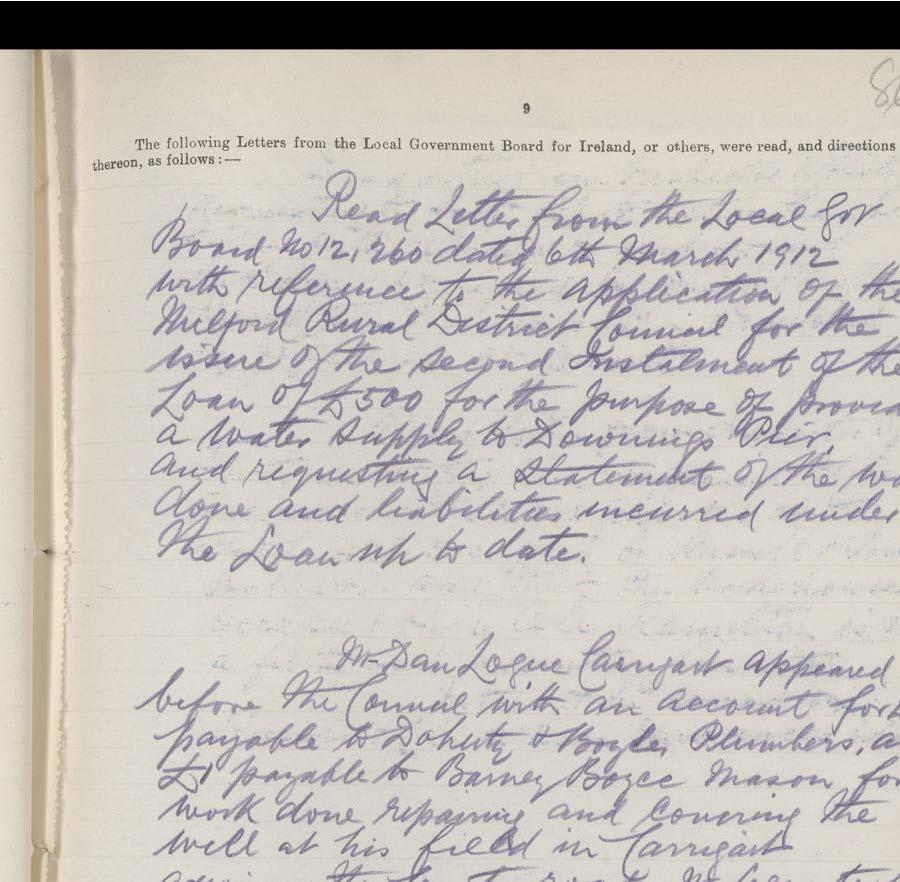 9
The following Letters from the Local Government Board for Ireland, or others, were read, and directions
thereon, as follows:—
Read Letter from the Local Gov
Board No 12,260 dated 6th March 1912
with reference to the application of the
Milford Rural District Council for the
issue of the second Instalment of the
Loan of £500 for the purpose of
a water supply to Downings Pier,
and requesting a Statement of the
done and liabilities incurred under
the Loan up to date.
Mr Dan Logue Carrigart appeared
before the Council with an account for
payable to Doherty & Boyle, Plumbers,
£1 payable to Barney Boyce Mason for
work done repairing and covering the
well at his field in Carrigart